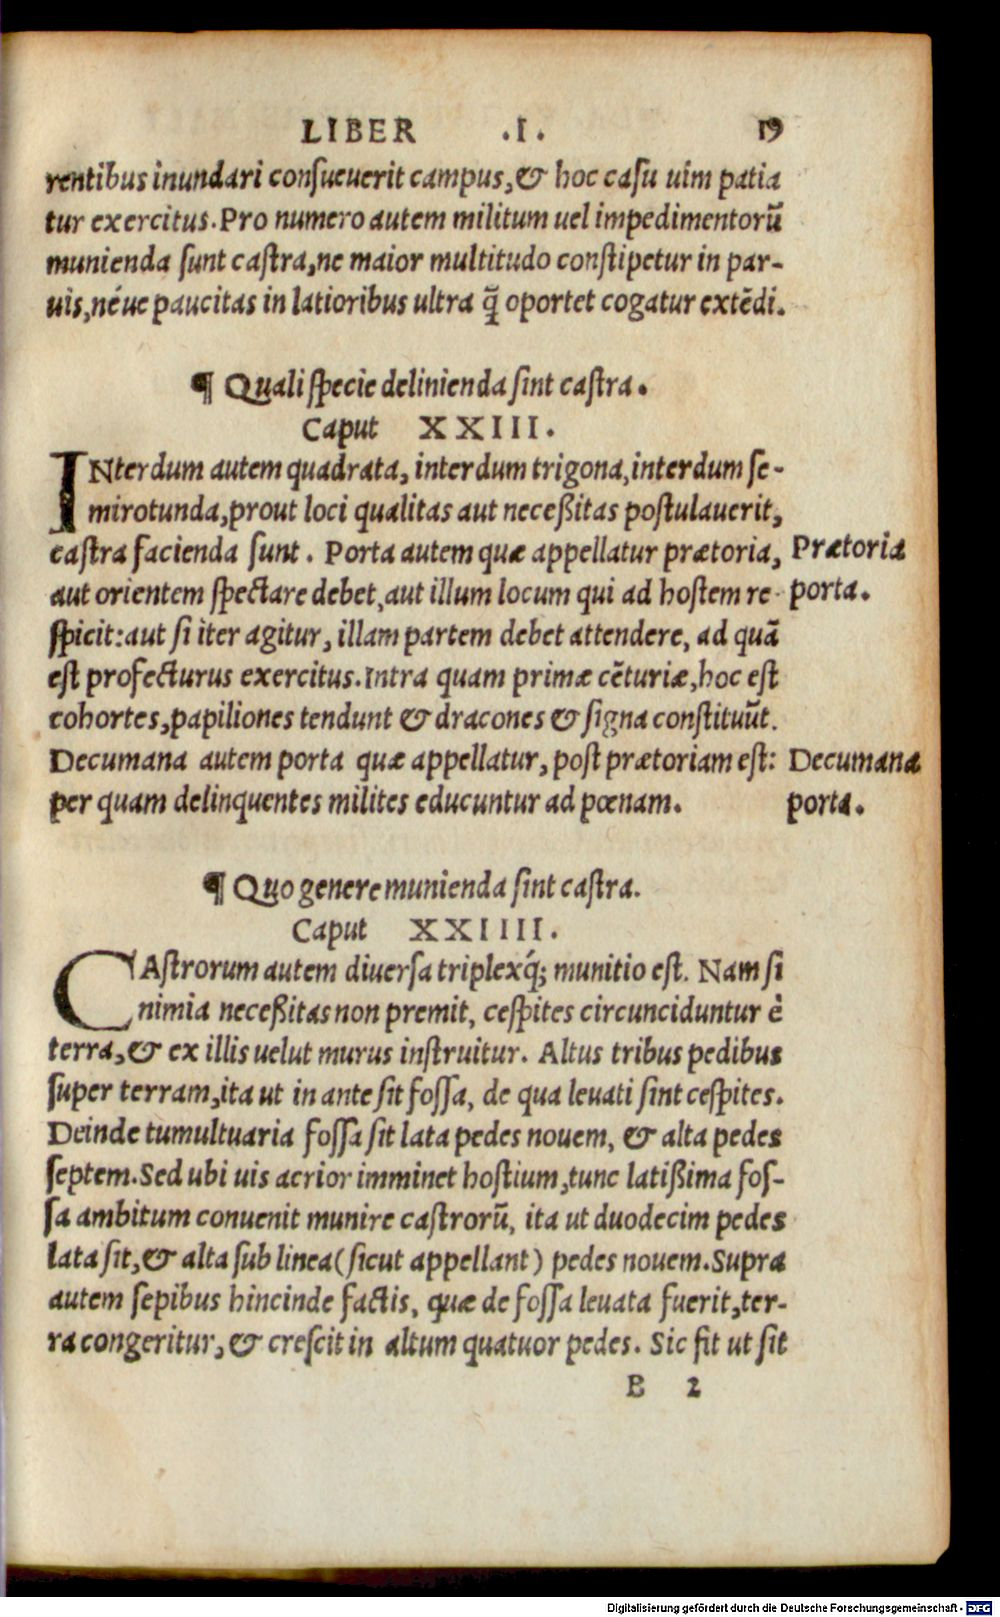 LIBER .I. 19
rentibus inundari conſueuerit campus, & hoc caſu uim patia
tur exercitus. Pro numero autem militum uel impedimentorū
munienda ſunt caſtra, ne maior multitudo conſtipetur in par-
uis, néue paucitas in latioribus ultra q̄ oportet cogatur extēdi.
¶ Quali ſpecie delinienda ſint caſtra.
Caput XXIII.
INterdum autem quadrata, interdum trigona, interdum ſe-
mirotunda, prout loci qualitas aut neceßitas poſtulauerit,
caſtra facienda ſunt. Porta autem quæ appellatur prætoria,
Prætoria
aut orientem ſpectare debet, aut illum locum qui ad hoſtem re-
porta.
ſpicit: aut ſi iter agitur, illam partem debet attendere, ad quā
eſt profecturus exercitus. Intra quam primæ cēturiæ, hoc eſt
cohortes, papiliones tendunt & dracones & ſigna conſtituūt.
Decumana autem porta quæ appellatur, poſt prætoriam eſt:
Decumana
per quam delinquentes milites educuntur ad pœnam.
porta.
¶ Quo genere munienda ſint caſtra.
Caput XXIIII.
CAſtrorum autem diuerſa triplexq́; munitio eſt. Nam ſi
nimia neceßitas non premit, ceſpites circunciduntur è
terra, & ex illis uelut murus inſtruitur. Altus tribus pedibus
ſuper terram, ita ut in ante ſit foſſa, de qua leuati ſint ceſpites.
Deinde tumultuaria foſſa ſit lata pedes nouem, & alta pedes
ſeptem. Sed ubi uis acrior imminet hoſtium, tunc latißima foſ-
ſa ambitum conuenit munire caſtrorū, ita ut duodecim pedes
lata ſit, & alta ſub linea (ſicut appellant) pedes nouem. Supra
autem ſepibus hincinde factis, quæ de foſſa leuata fuerit, ter-
ra congeritur, & creſcit in altum quatuor pedes. Sic fit ut ſit
B 2
Digitalisierung gefördert durch die Deutsche Forschungsgemeinschaft - DFG